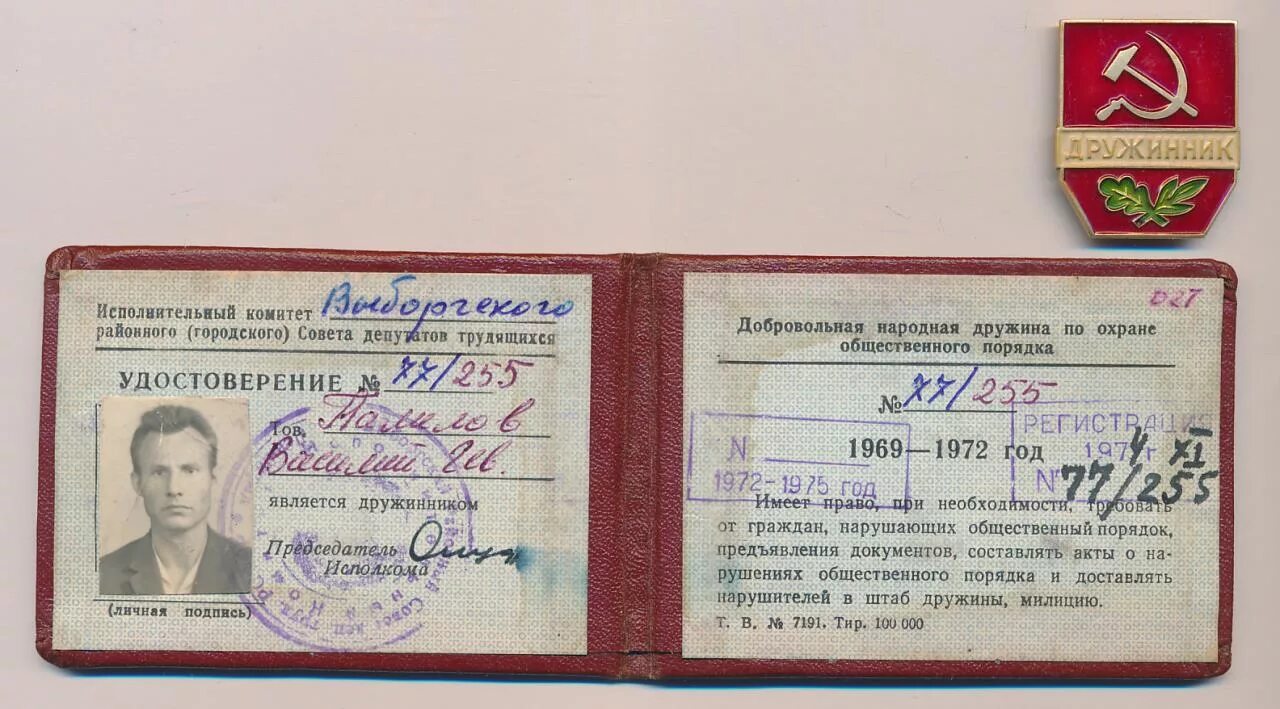 ДРУЖИННИК
Исполнительный комитет Выборгского
районного (городского) Совета депутатов трудящихся
УДОСТОВЕРЕНИЕ № 77/255
Тов. Палилов
Василий
является дружинником
Председатель
Исполкома
(личная подпись)
027
Добровольная народная дружина по охране
общественного порядка
№ 77/255
РЕГИСТРАЦИЯ
N
1969—1972 год
1974г XI
1972-1975 год
N 77/255
Имеет право, при необходимости, требовать
от граждан, нарушающих общественный порядок,
предъявления документов, составлять акты о на-
рушениях общественного порядка и доставлять
нарушителей в штаб дружины, милицию.
Т. В. № 7191. Тир. 100 000